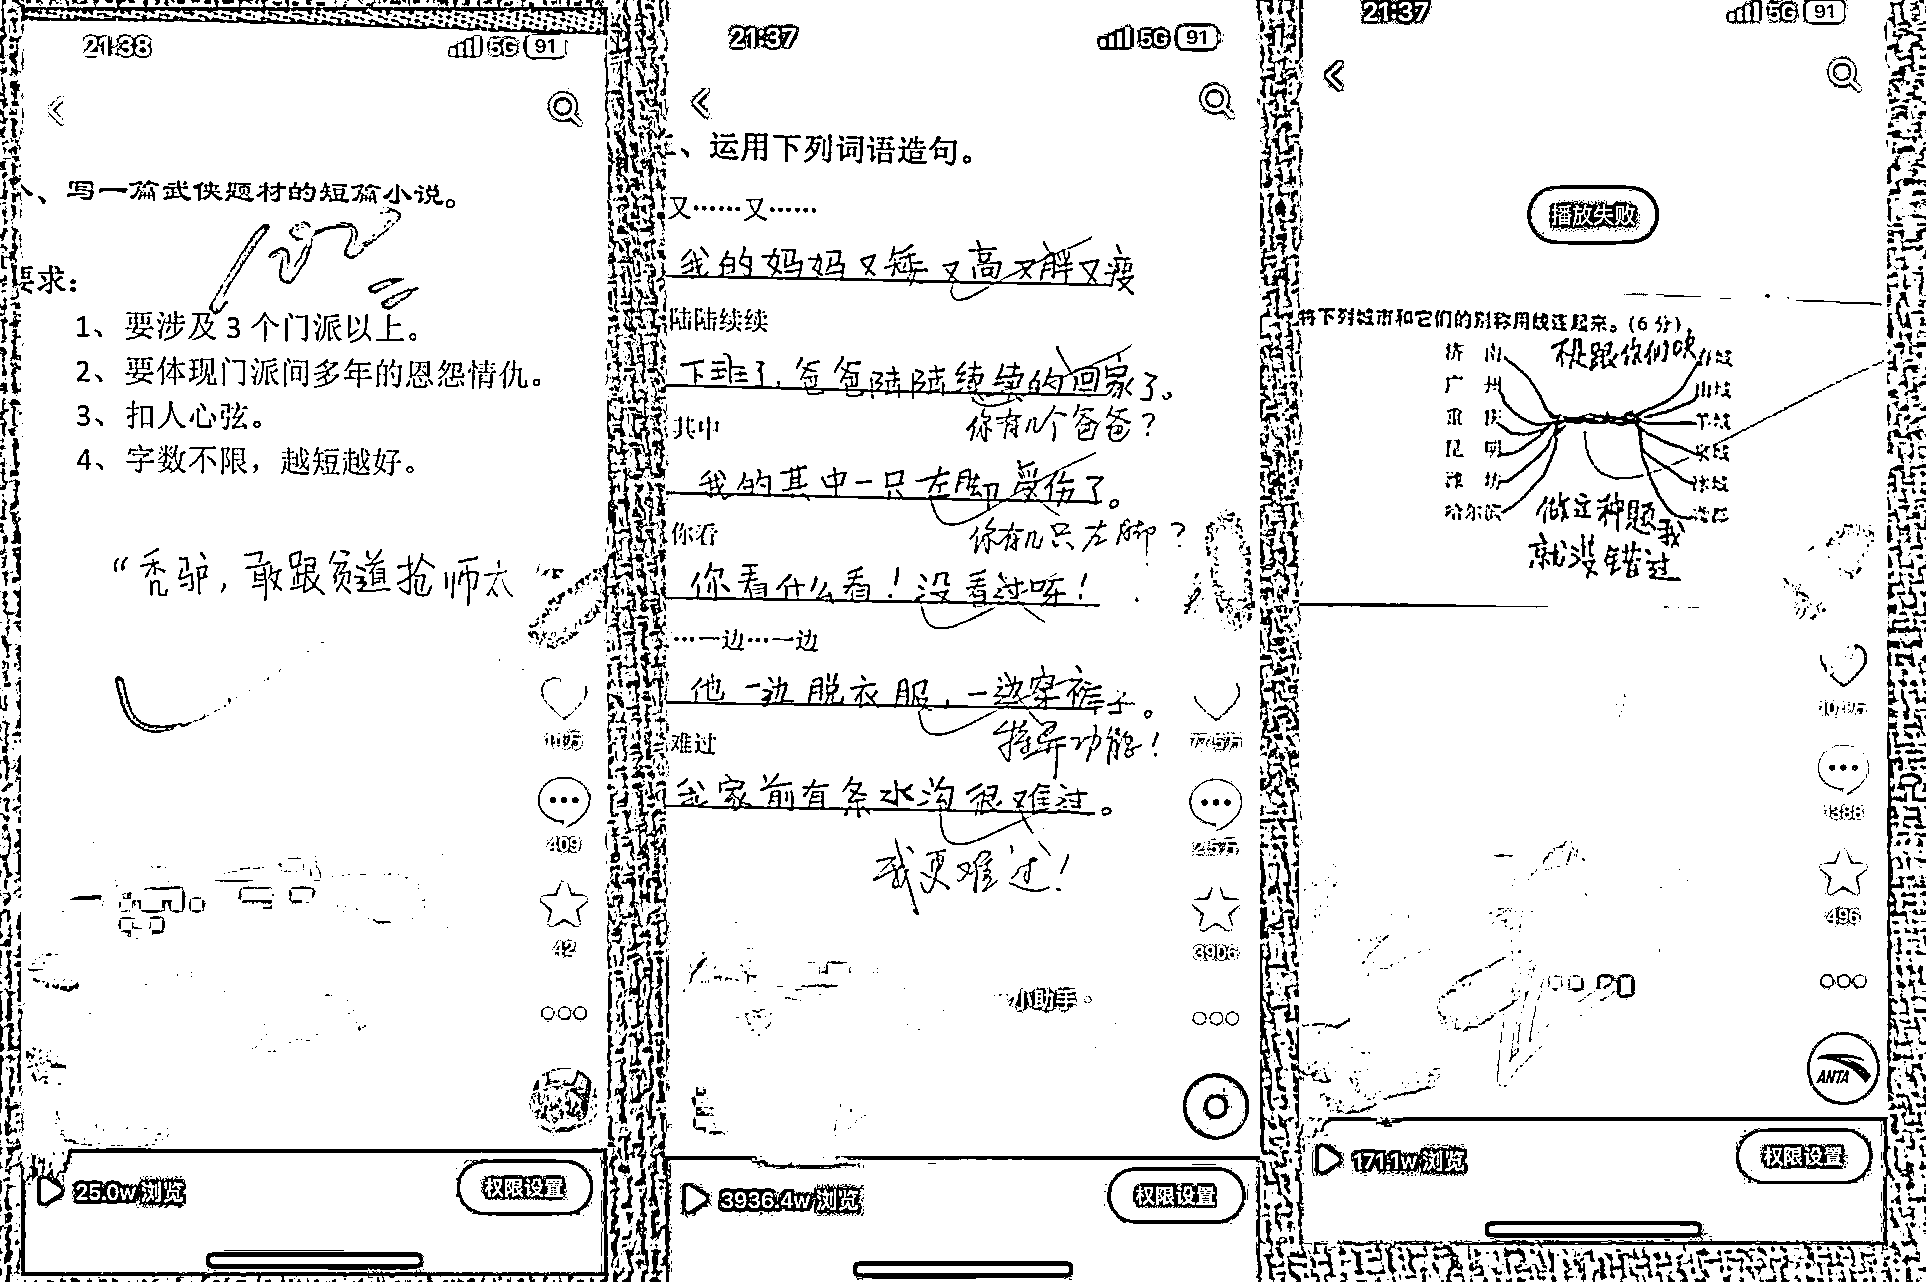 21:38
5G 91
、写一篇武侠题材的短篇小说。
100
要求:
1、要涉及3个门派以上。
2、要体现门派间多年的恩怨情仇。
3、扣人心弦。
4、字数不限，越短越好。
“秃驴，敢跟贫道抢师太
409
42
25.0w浏览
权限设置
21:37
5G 91
、运用下列词语造句。
又……又……
我的妈妈又矮又高又胖又瘦
陆陆续续
下班了，爸爸陆陆续续的回家了。
其中
你有几个爸爸？
我的其中一只左脚受伤了。
你看
你有几只左脚？
你看什么看！没看过呀！
…一边…一边
他一边脱衣服，一边穿裤子。
难过
特异功能！
我家前有条水沟很难过。
我更难过！
3906
小助手
3936.4w浏览
权限设置
21:37
5G 91
播放失败
将下列城市和它们的别称用线连起来。(6分)
济南
广州
重庆
昆明
潍坊
哈尔滨
做这种题我
就没错过
496
ANTA
171.1w浏览
权限设置